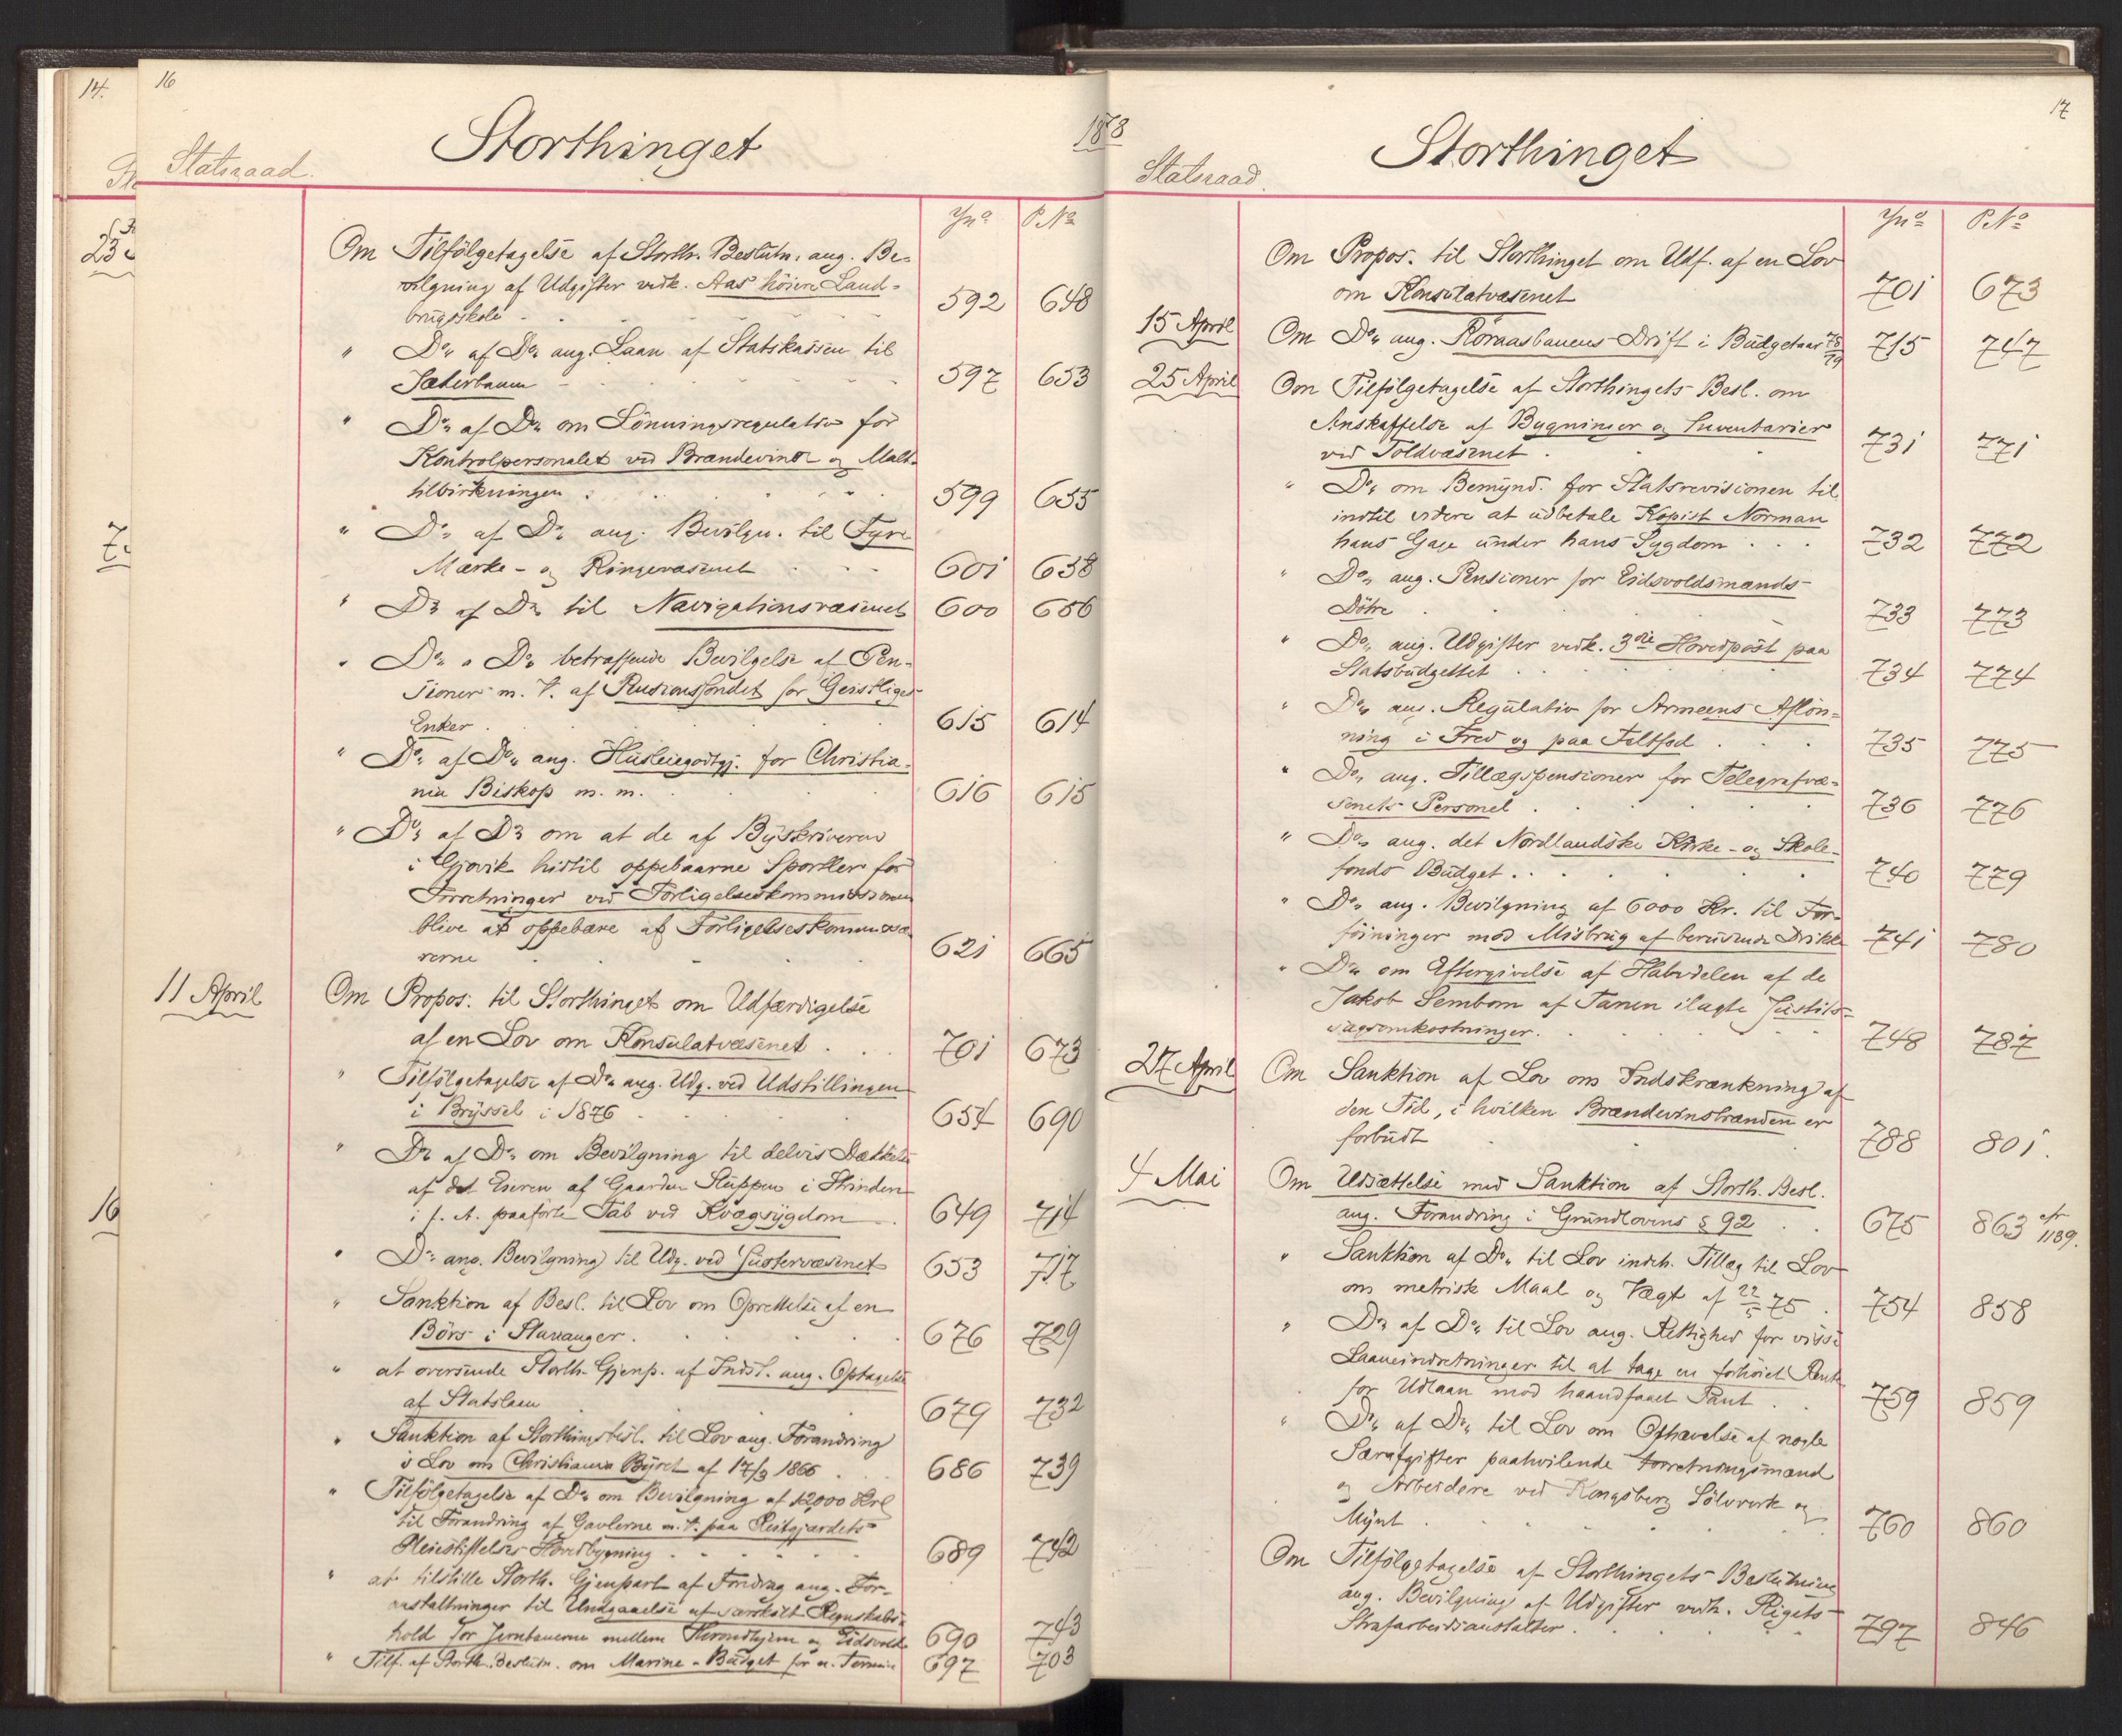 14.
16
Statsraad.
Storthinget
1878
Jnº PNº
Om Tilfölgetagelse af Storth. Beslutn. ang. Be-
vilgning af Udgifter vedk. Aas höiere Land-
brugsskole 592 648
" Do. af Do. ang. Laan af Statskassen til
Sæterbanen 597 653
" Do. af Do. om Lönningsregulativ for
Kontrolpersonalet ved Brændevins og Malt-
tilvirkningen 599 655
" Do. af Do. ang. Bevilgn. til Fyr-
Mærke- og Ringevæsenet 601 658
" Do. af Do. til Navigationsvæsenet 600 656
" Do. " Do. betræffende Bevilgelse af Pen-
sioner m. V. af Pensionsfondet for Geistliges
Enker 615 614
" Do. af Do. ang. Husleiegodtgj. for Christia-
nia Biskop m. m. 616 615
" Do. af Do. om at de af Byskriveren
i Gjøvik hidtil oppebaarne Sportler for
Forretninger ved Forligelseskommissionen
blive at oppebære af Forligelseskommissæ-
rerne 621 665
11 April Om Propos. til Storthinget om Udfærdigelse
af en Lov om Konsulatvæsenet 701 673
" Tilfölgetagelse af Do. ang. Udg. ved Udstillingen
i Bryssel i 1876 654 690
" Do. af Do. om Bevilgning til delvis Dækkelse
af det Eieren af Gaarden Sluppen i Strinden
i f. A. paaførte Tab ved Kvægsygdom 649 714
" Do. ang. Bevilgning til Udg. ved Justervæsenet 653 717
" Sanktion af Besl. til Lov om Oprettelse af en
Börs i Stavanger. 676 729
" at oversende Storth. Gjenp. af Indst. ang. Optagelse
af Statslaan 679 732
" Sanktion af Storthingsbesl. til Lov ang. Forandring
i Lov om Christiania Byret af 17/3 1866 686 739
" Tilfölgetagelse af Do. om Bevilgning af 12000 Kr
til Forandring af Gavlerne m. V. paa Reitgjærdets
Pleiestiftelses Hovedbygning 689 742
" at tilstille Storth. Gjenpart af Foredrag ang. For-
anstaltninger til Undgaaelse af særskilt Regnskabs-
hold for Jernbanerne mellem Throndhjem og Eidsvold 690 743
" Tilf. af Storth. Beslutn. om Marine-Budget for n. Termin 697 703
17
Statsraad.
Storthinget
Jnº PNº
Om Propos. til Storthinget om Udf. af en Lov
om Konsulatvæsenet 701 673
15 April Om Do. ang. Rørosbanens Drift i Budgetaar 78/79 715 747
25 April Om Tilfölgetagelse af Storthingets Besl. om
Anskaffelse af Bygninger og Inventarier
ved Toldvæsenet 731 771
" Do. om Bemynd. for Statsrevisionen til
indtil videre at udbetale Kopist Norman
hans Gage under hans Sygdom 732 772
" Do. ang. Pensioner for Eidsvoldsmænds
Döttre 733 773
" Do. ang. Udgifter vedk. 3die Hovedpost paa
Statsbudgettet 734 774
" Do. ang. Regulativ for Armeens Aflön-
ning i Fred og paa Feltfod 735 775
" Do. ang. Tillægspensioner for Telegrafvæ-
senets Personel 736 776
" Do. ang. det Nordlandske Kirke- og Skole-
fonds Budget 740 779
" Do. ang. Bevilgning af 6000 Kr. til For-
föininger mod Misbrug af berusende Drikke 741 780
" Do. om Eftergivelse af Halvdelen af de
Jakob Sembom af Tanen ilagte Justits-
sagsomkostninger. 748 787
27 April Om Sanktion af Lov om Indskrænkning af
den Tid, i hvilken Brændevinsbrænden er
forbudt 788 801.
4 Mai Om Udsættelse med Sanktion af Storth. Besl.
ang. Forandring i Grundlovens § 92 675 863 cfr 1189.
" Sanktion af Do. til Lov indeh. Tillæg til Lov
om metrisk Maal og Vægt af 22/5 75. 754 858
" Do. af Do. til Lov ang. Rettighed for visse
Laaneindretninger til at tage en forhöiet Rente
for Udlaan mod haandfaaet Pant 759 859
" Do. af Do. til Lov om Ophævelse af nogle
Særafgifter paahvilende Forretningsmænd
og Arbeidere ved Kongsberg Sölvverk og
Mynt 760 860
Om Tilfölgetagelse af Storthingets Beslutning
ang. Bevilgning af Udgifter vedk. Rigets
Strafarbeidsanstalter 797 846